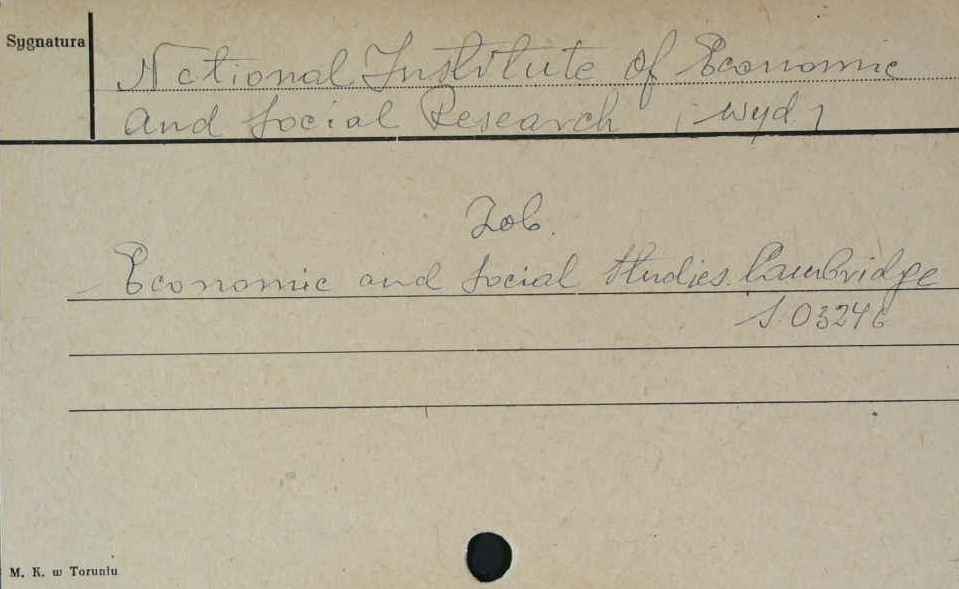 Sygnatura
National Institute of Economic
and Social Research ; wyd /
Zob.
Economic and Social Studies. Cambridge
S. 03246
M. K. w Toruniu